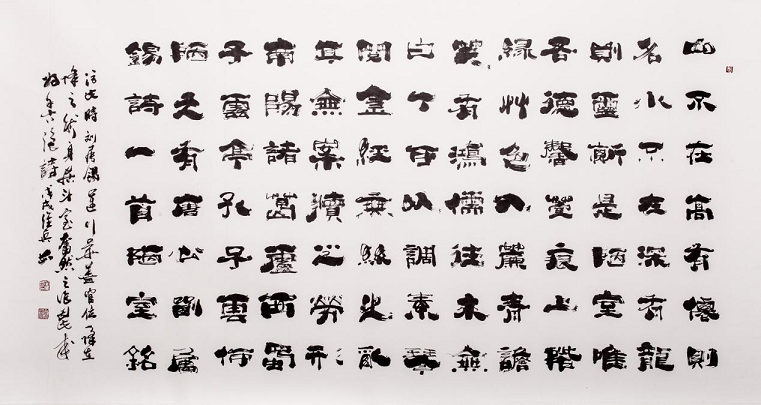 山不在高有僊則
名水不在深有龍
則靈斯是陋室唯
吾德馨苔痕上階
綠艸色入簾青談
笑有鴻儒往來無
白丁可以調素琴
閱金經無絲竹亂
耳無案牘之勞形
南陽諸葛廬西蜀
子雲亭孔子雲何
陋之有唐公劉禹
錫詩一首陋室銘
時劉禹錫
詩戊戌